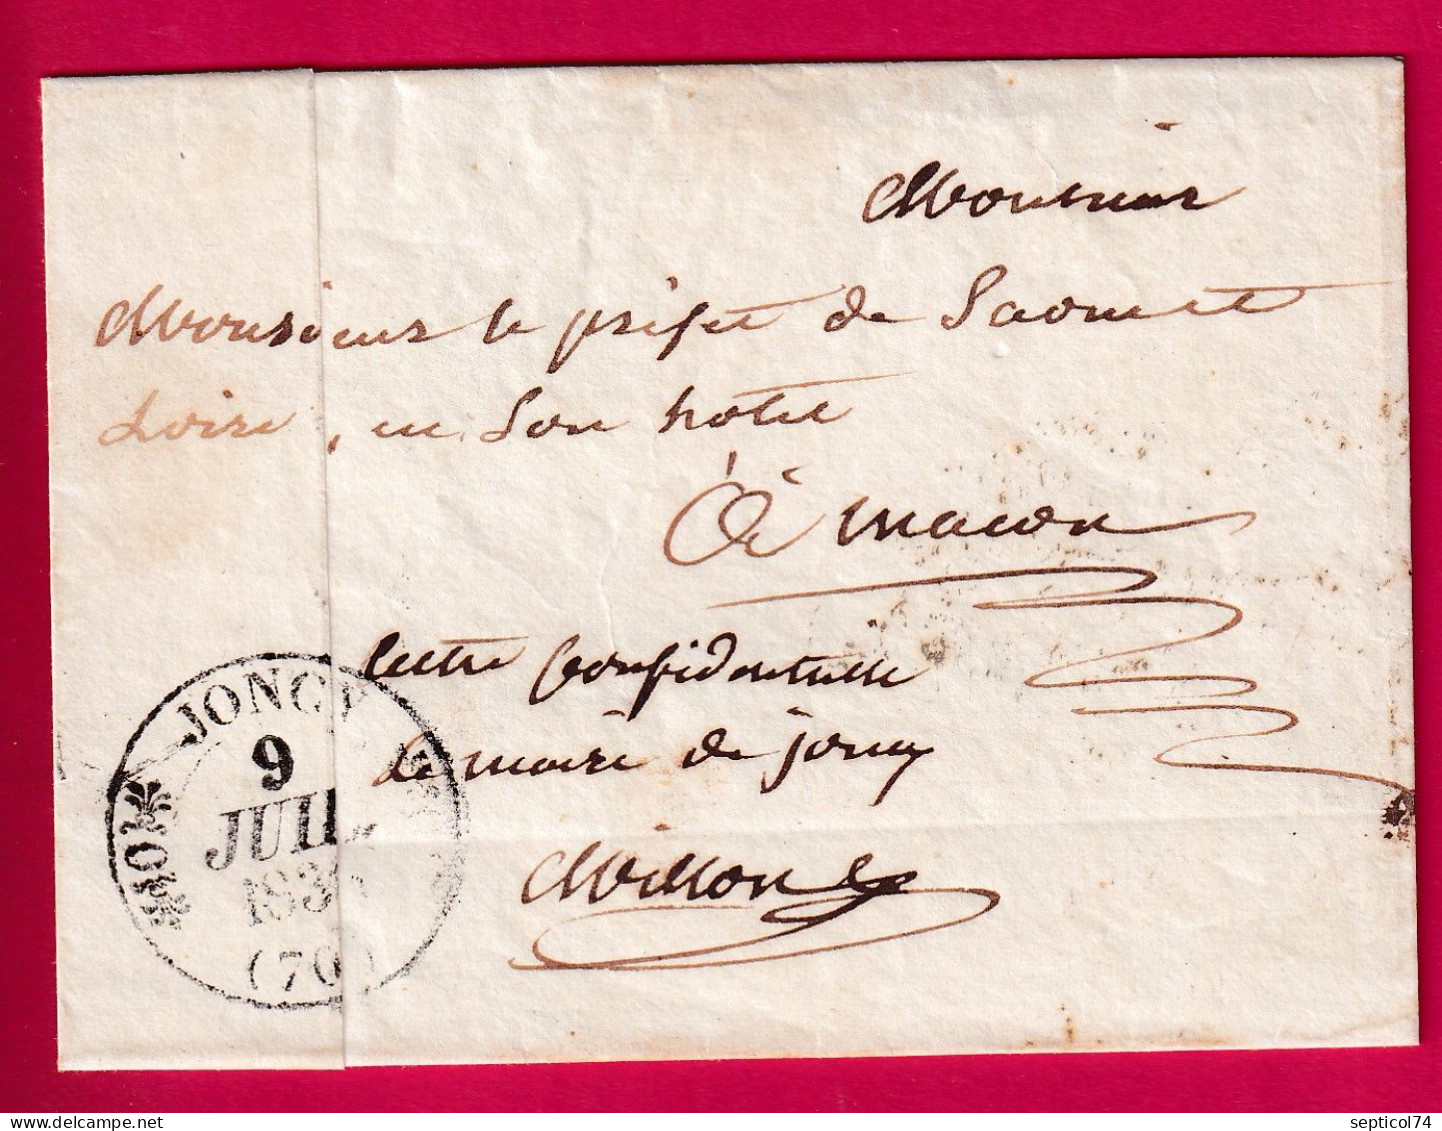 Monsieur
Monsieur le préfet de Saone et
Loire, en son hôtel
à macon
lettre confidentielle
le maire de joncy
JONCY
9
JUIL
(70)
septicol74